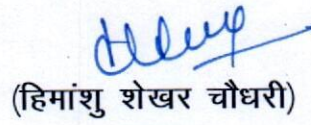 (हिमांशु शेखर चौधरी)